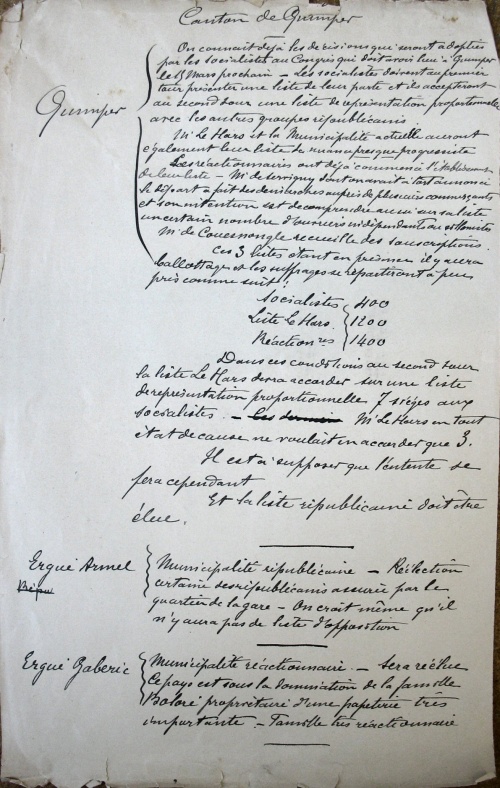 Canton de Quimper
On connait déjà les décisions qui seront adoptées
par les socialistes au Congrès qui doit avoir lieu à Quimper
le 8 Mars prochain — Les socialistes doivent au premier
tour présenter une liste de leur parti et ils accepteront
au second tour une liste de représentation proportionnelle
avec les autres groupes républicains.
Quimper
Mr Le Hars et la Municipalité actuelle auront
également leur liste de nuance presque progressiste
Les réactionnaires ont déjà commencé l'établissement
de leur liste — Mr de Servigny dont on avait à tort annoncé
le départ a fait des démarches auprès de plusieurs commerçants
et son intention est de comprendre aussi sur sa liste
un certain nombre d'ouvriers indépendants
Mr de Couesnongle recueille des souscriptions.
Ces 3 listes étant en présence il y aura
ballottage et les suffrages se répartiront à peu
près comme suit :
Socialistes 400
Liste Le Hars 1200
Réactionres 1400
Dans ces conditions au second tour
la liste Le Hars devra accorder sur une liste
de représentation proportionnelle 7 sièges aux
socialistes. — Les dernier Mr Le Hars en tout
état de cause ne voulait en accorder que 3.
Il est à supposer que l'entente se
fera cependant
Et la liste républicaine doit être
élue.
Ergué Armel
Municipalité républicaine — Réélection
certaine des républicains assurée par le
quartier de la gare — On croit même qu'il
n'y aura pas de liste d'opposition
Ergué Gaberic
Municipalité réactionnaire. — Sera réélue
Le pays est sous la domination de la famille
Bolloré propriétaire d'une papeterie très
importante — Famille très réactionnaire